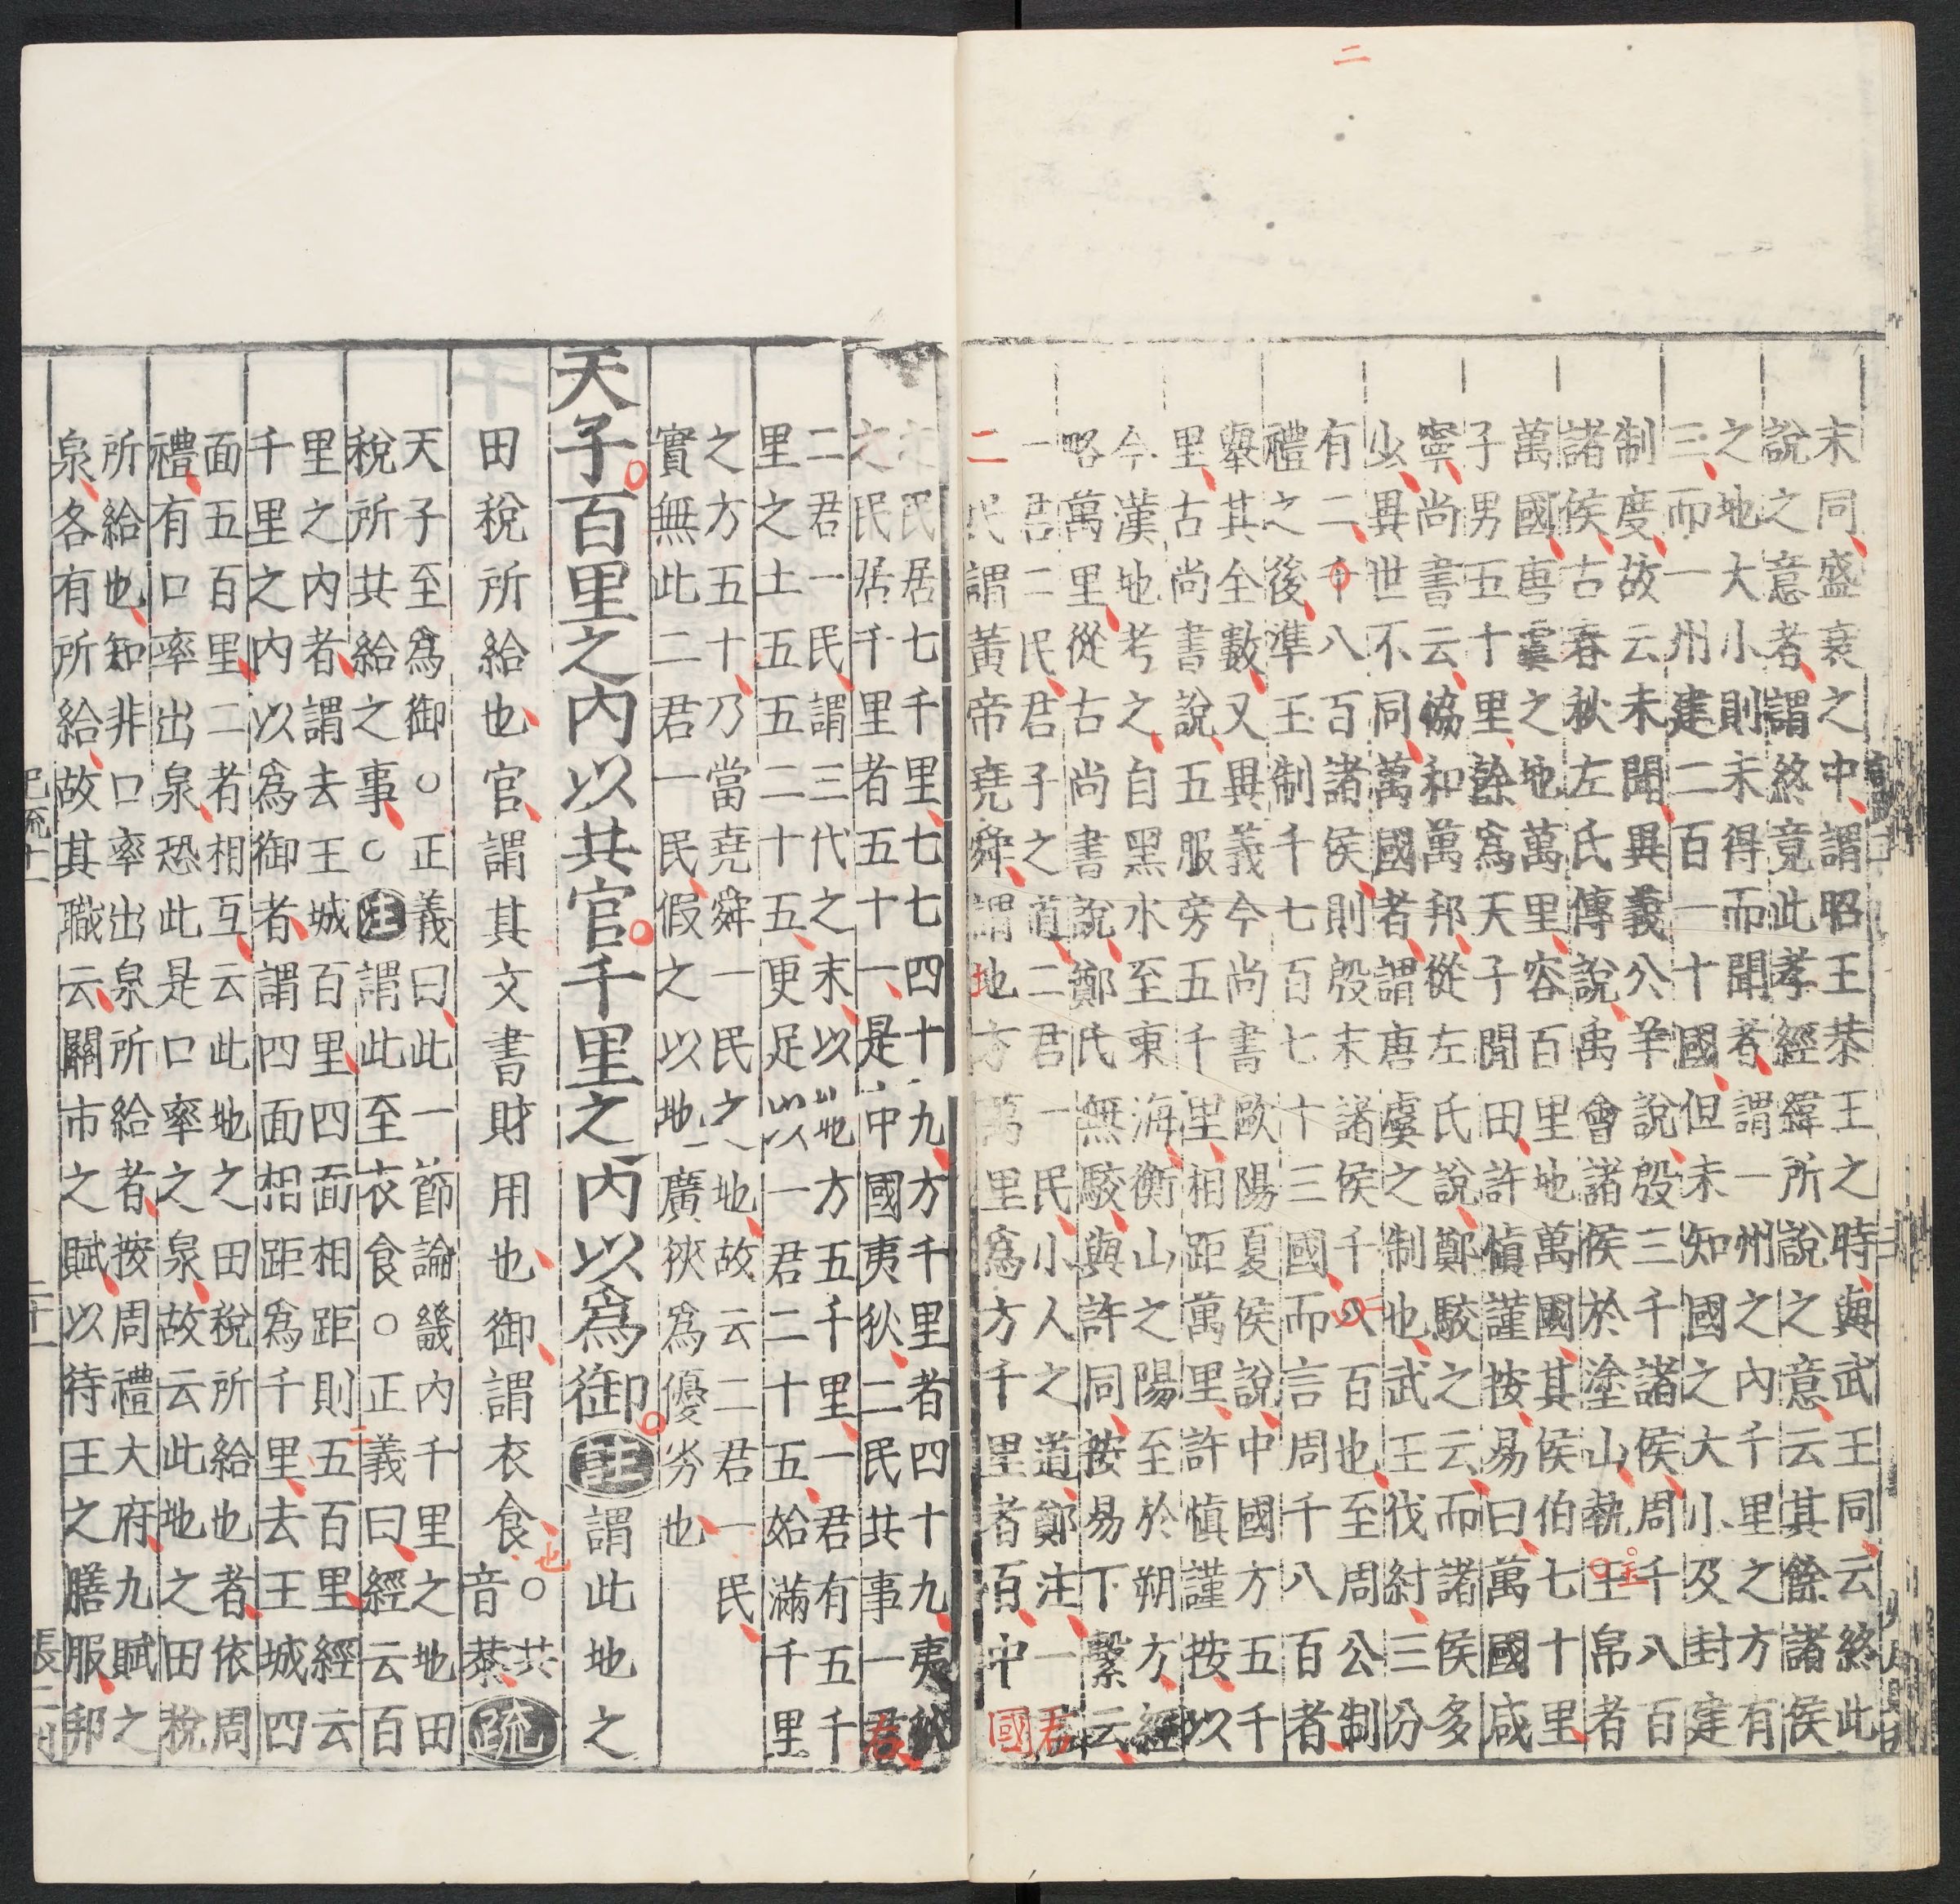 末同盛衰之中謂昭王恭王之時與武王同云終此
說之意者謂終竟此孝經緯所說之意云其餘諸侯
之地大小則未得而聞者謂一州之內千里之方有
三而一州建二百一十國但未知國之大小及封建
制度故云未聞異義公羊說殷三千諸侯周千八百
諸侯古春秋左氏傳說禹會諸侯於塗山執玉帛者
萬國唐虞之地萬里容百里地萬國其侯伯七十里
子男五十里餘爲天子閒田許慎謹按易曰萬國咸
寧尚書云協和萬邦從左氏說鄭駮之云而諸侯多
少異世不同萬國者謂唐虞之制也武王伐紂三分
有二千八百諸侯則殷末諸侯千八百也至周公制
禮之後準王制千七百七十三國而言周千八百者
舉其全數又異義今尚書歐陽夏侯說中國方五千
里古尚書說五服旁五千里相距萬里許慎謹按以
今漢地考之自黑水至東海衡山之陽至於朔方經
略萬里從古尚書說鄭氏無駮與許同按易下繫云
一君二民君子之道二君一民小人之道鄭注一君
二民謂黃帝堯舜謂地方萬里爲方千里者百中國
之民居七千里七七四十九方千里者四十九夷狄
之民居千里者五十一是中國夷狄二民共事一君
二君一民謂三代之末以地方五千里一君有五千
里之土五五二十五更足以一君二十五始滿千里
之方五十乃當堯舜一民之地故云二君一民
實無此二君一民假之以地廣狹爲優劣也
天子百里之內以共官千里之內以爲御注謂此地之
田稅所給也官謂其文書財用也御謂衣食也○共音恭疏
天子至爲御○正義曰此一節論畿內千里之地田
稅所共給之事○注謂此至衣食○正義曰經云百
里之內者謂去王城百里四面相距則二百里經云
千里之內以爲御者謂四面相距爲千里去王城四
面五百里二者相互云此地之田稅所給也者依周
禮有口率出泉恐此是口率之泉故云此地之田稅
所給也知非口率出泉所給者按周禮大府九賦之
泉各有所給故其職云關市之賦以待王之膳服邦